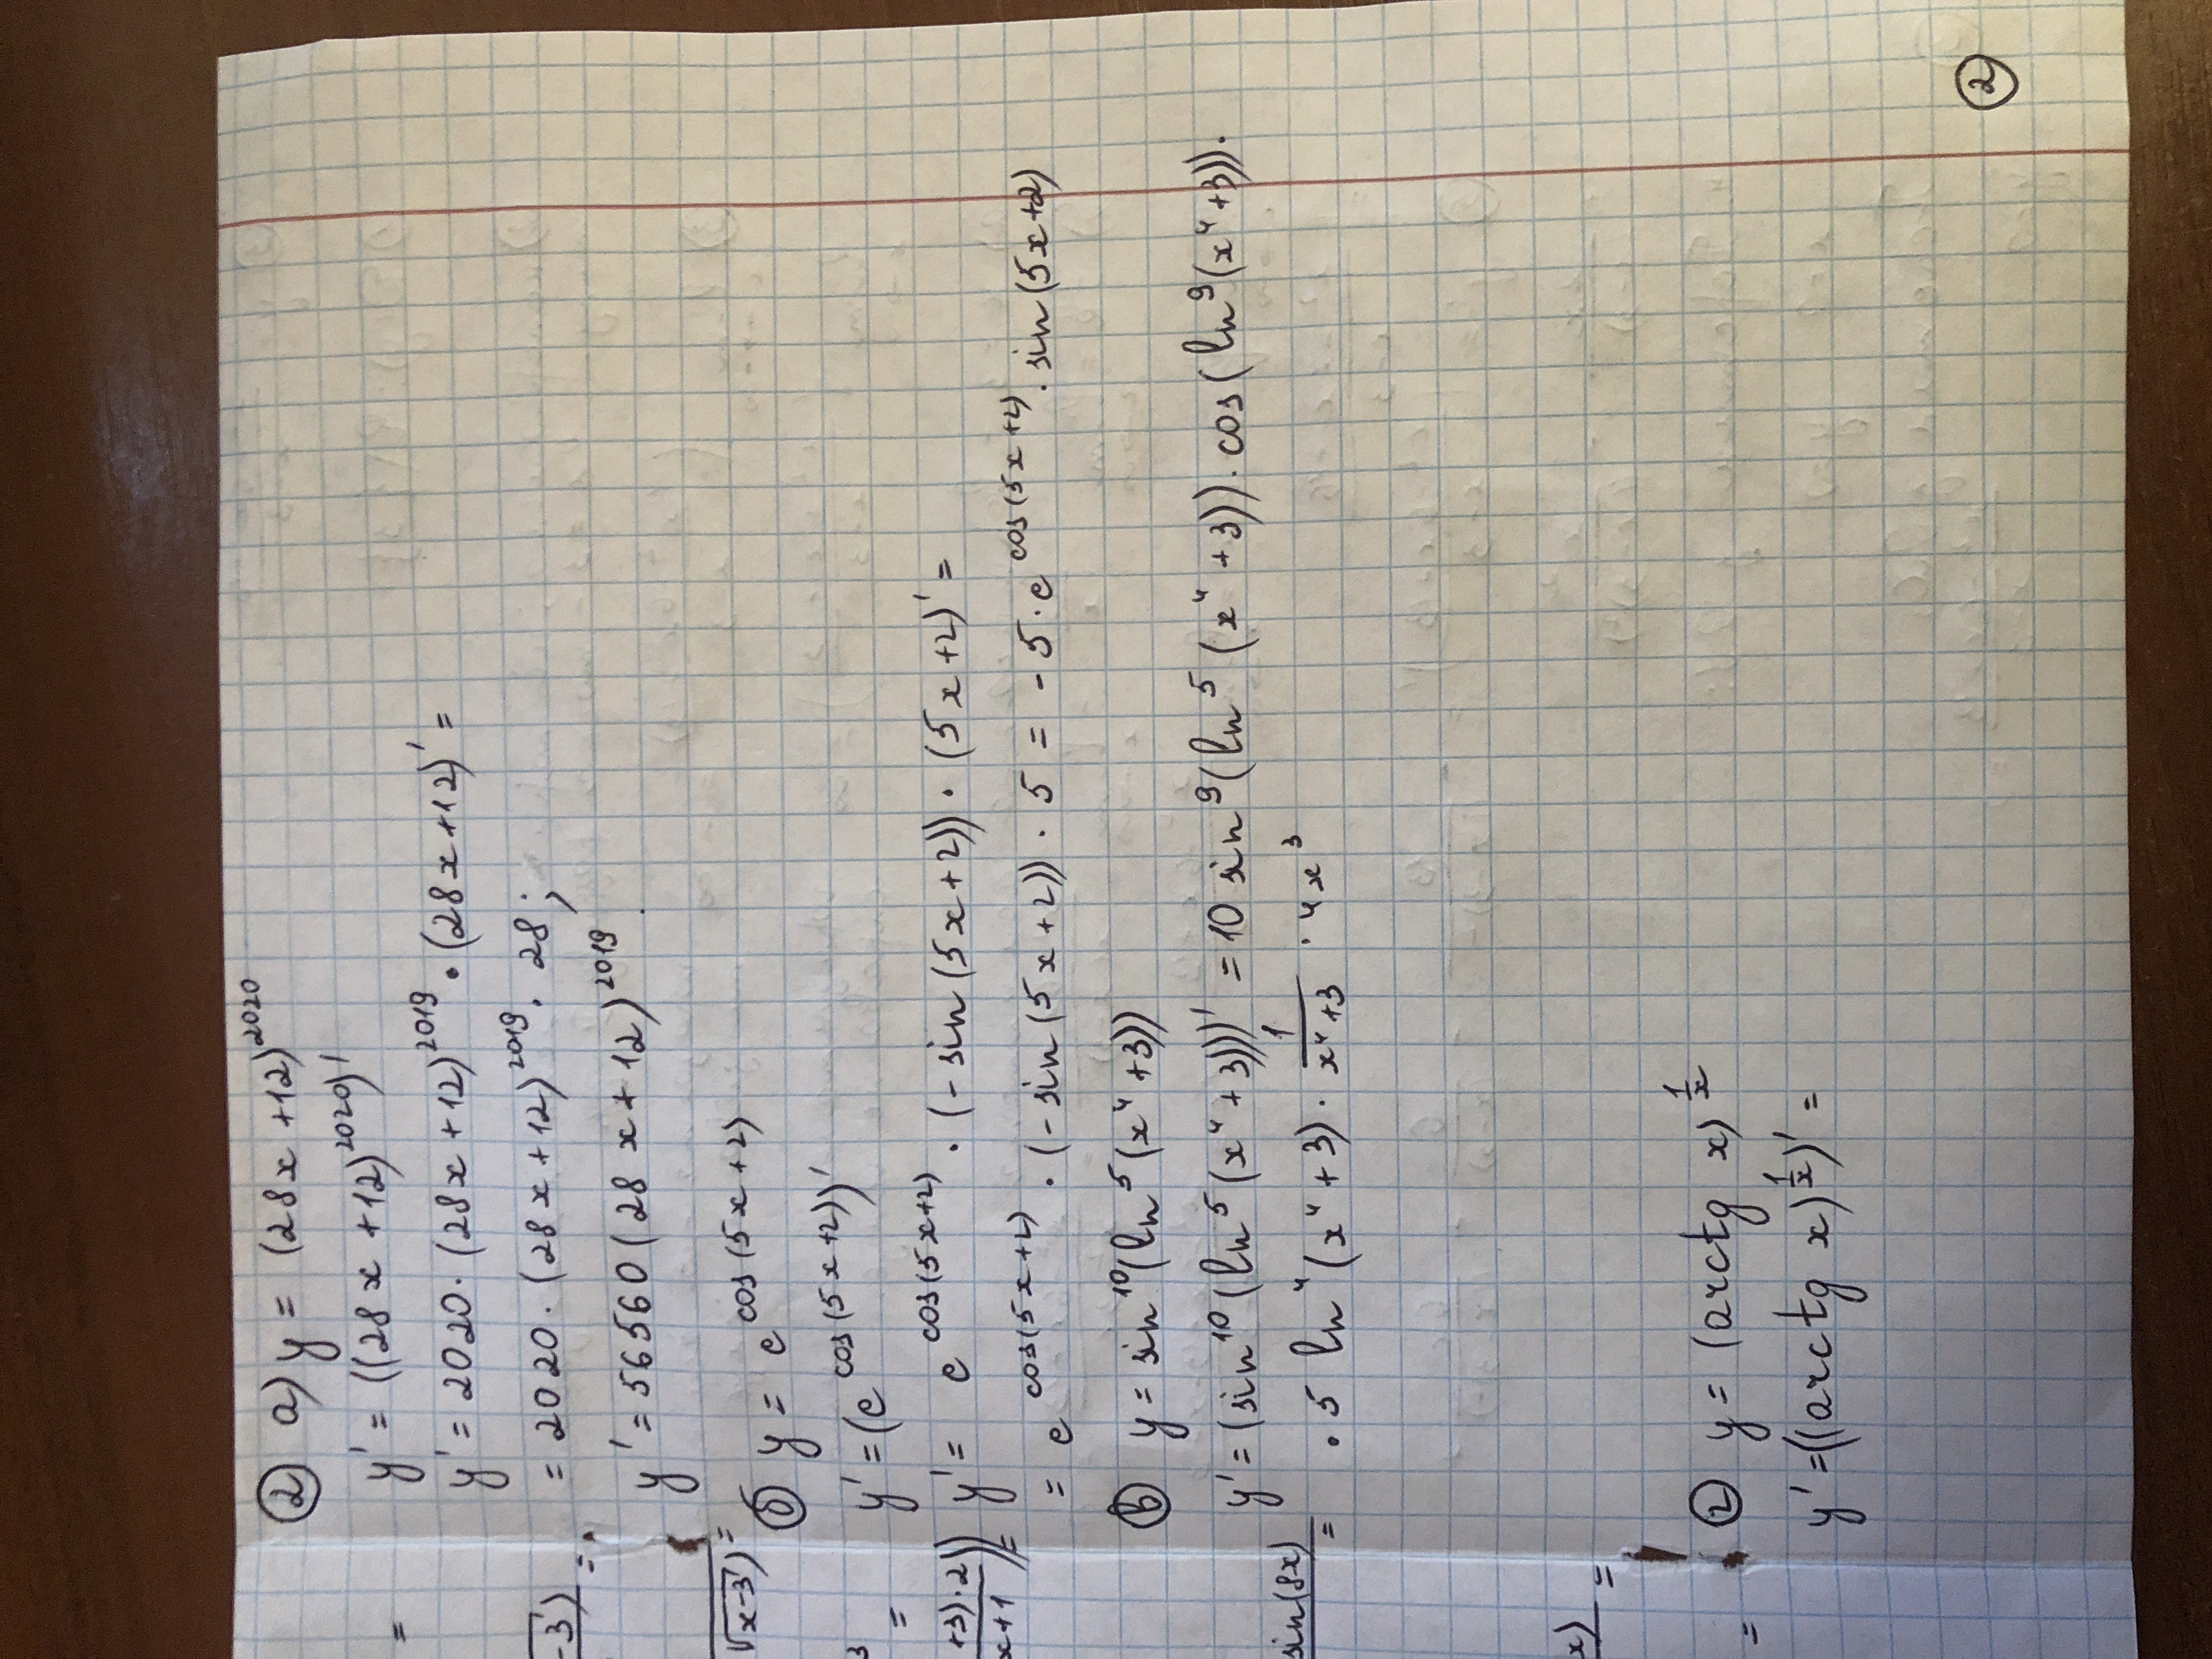 ② а) y = (28x+12)^2020
y' = ((28x+12)^2020)'
y' = 2020·(28x+12)^2019 · (28x+12)' =
= 2020·(28x+12)^2019 · 28;
y' = 56560(28x+12)^2019.
б y = e^cos(5x+2)
y' = (e^cos(5x+2))'
y' = e^cos(5x+2) · (-sin(5x+2)) · (5x+2)' =
= e^cos(5x+2) · (-sin(5x+2)) · 5 = -5·e^cos(5x+2) · sin(5x+2)
в y = sin^10(ln^5(x^4+3))
y' = (sin^10(ln^5(x^4+3)))' = 10 sin^9(ln^5(x^4+3)) · cos(ln^9(x^4+3)) ·
· 5 ln^4(x^4+3) · 1/(x^4+3) · 4x^3
г y = (arctg x)^(1/x)
y' = ((arctg x)^(1/x))' =
②
=
-3) =
√x-3') =
3
=
+3)·2))
x+1 =
sin(8x) =
x) =
=